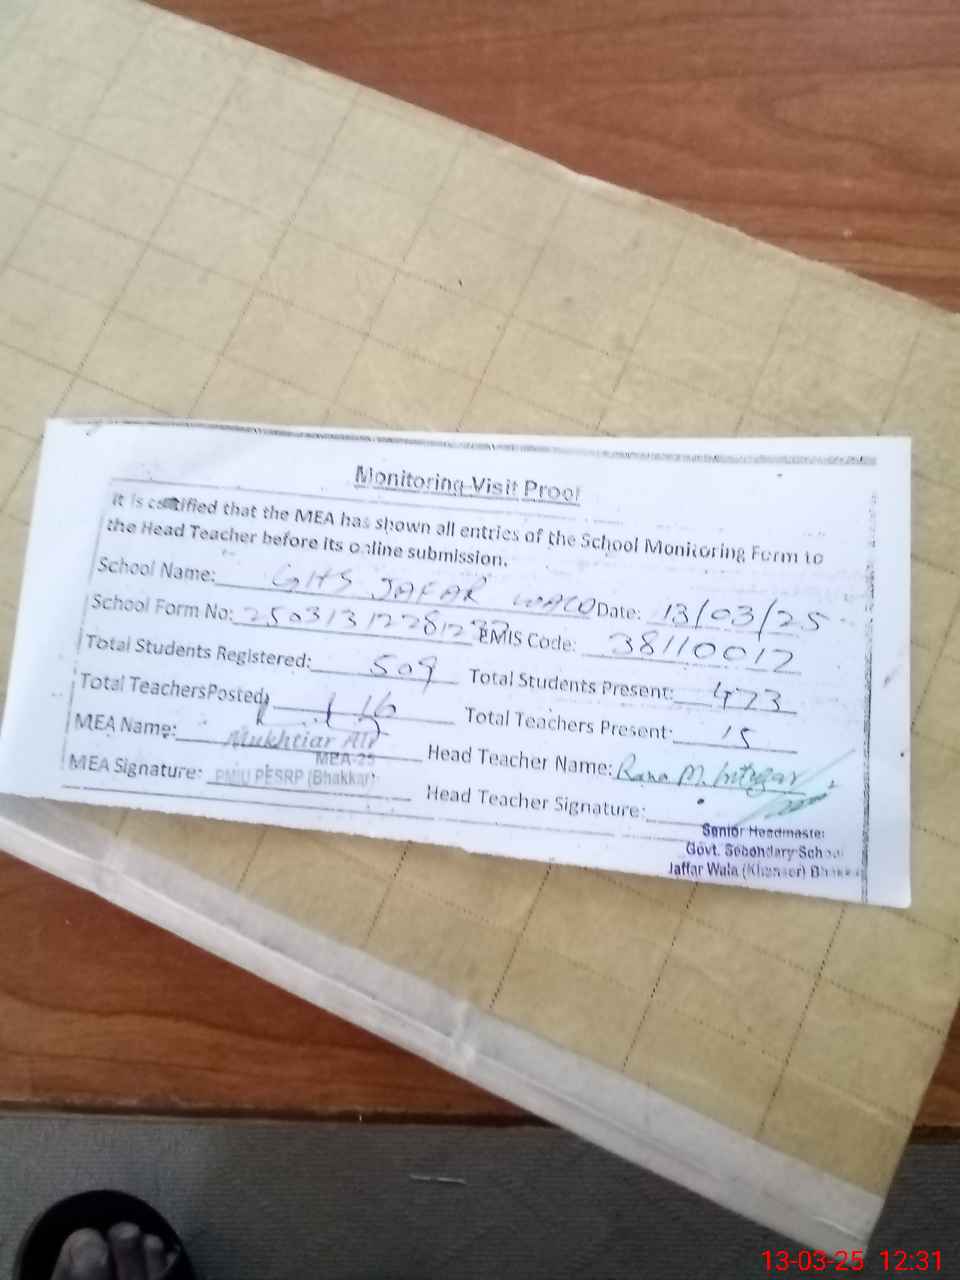 Monitoring Visit Proof
It is certified that the MEA has shown all entries of the School Monitoring Form to
the Head Teacher before its online submission.
School Name: GHS JAFAR WALA Date: 13/03/25
School Form No: EMIS Code: 38110012
Total Students Registered: 509 Total Students Present: 473
Total TeachersPosted: 16 Total Teachers Present: 15
MEA Name: Mukhtiar Ali Head Teacher Name: Rana M. Intizar
MEA-25
MEA Signature: PMIU PESRP (Bhakkar) Head Teacher Signature:
Senior Headmaster
Govt. Secondary School
Jaffar Wala (Khanser) Bhakkar
13-03-25 12:31